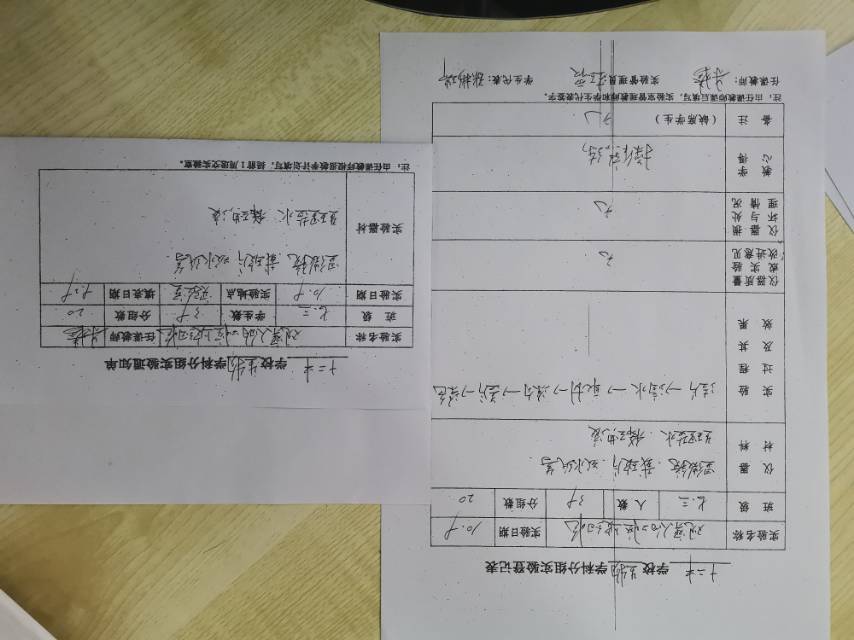 十二中 学校 生物 学科分组实验登记表
实验名称 观察人的口腔上皮细胞 实验日期 10.8
班级 七.三 人数 38 分组数 20
仪器材料 显微镜 载玻片 吸水纸等
生理盐水 稀碘液
实验过程及其效果 擦片→滴水→取材→涂匀→盖片→染色
仪器质量或实验改进意见 无
仪器损坏与处理情况 无
教学心得
备注 (缺席学生) 无
注:由任课教师课后填写,实验室管理教师和学生代表签字。
任课教师: 实验管理员: 学生代表:
十二中 学校 生物 学科分组实验通知单
实验名称 观察人的口腔上皮细胞 任课教师
班级 七.三 学生数 38 分组数 20
实验日期 10.8 实验地点 实验室 填表日期 9.28
实验器材 显微镜 载玻片 吸水纸等
生理盐水 稀碘液
注:由任课教师根据教学计划填写,提前1周递交实验室。